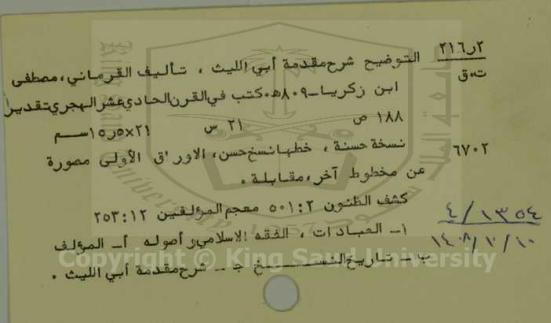 ٢١٦ر٢ التوضيح شرح مقدمة أبي الليث ، تأليف القرماني، مصطفى
ت٠ق ابن زكريا ـ ٨٠٩ھ٠ كتب في القرن الحادي عشر الهجري تقديرا
١٨٨ ص ٢١ س ٢١×١٥ر٥ سم
٦٧٠٢ نسخة حسنة ، خطها نسخ حسن، الاوراق الأولى مصورة
عن مخطوط آخر، مقابلة ٠
كشف الظنون ٢ : ٥٠١ معجم المؤلفين ١٢ : ٢٥٣
١ـ العبادات ، الفقه الاسلامي وأصوله أ ـ المؤلف
ب ـ تاريخ النسخ ج ـ شرح مقدمة أبي الليث ٠
١٣٥٤ / ٤
١٤٠٨/١٠/١٠
Copyright © King Saud University